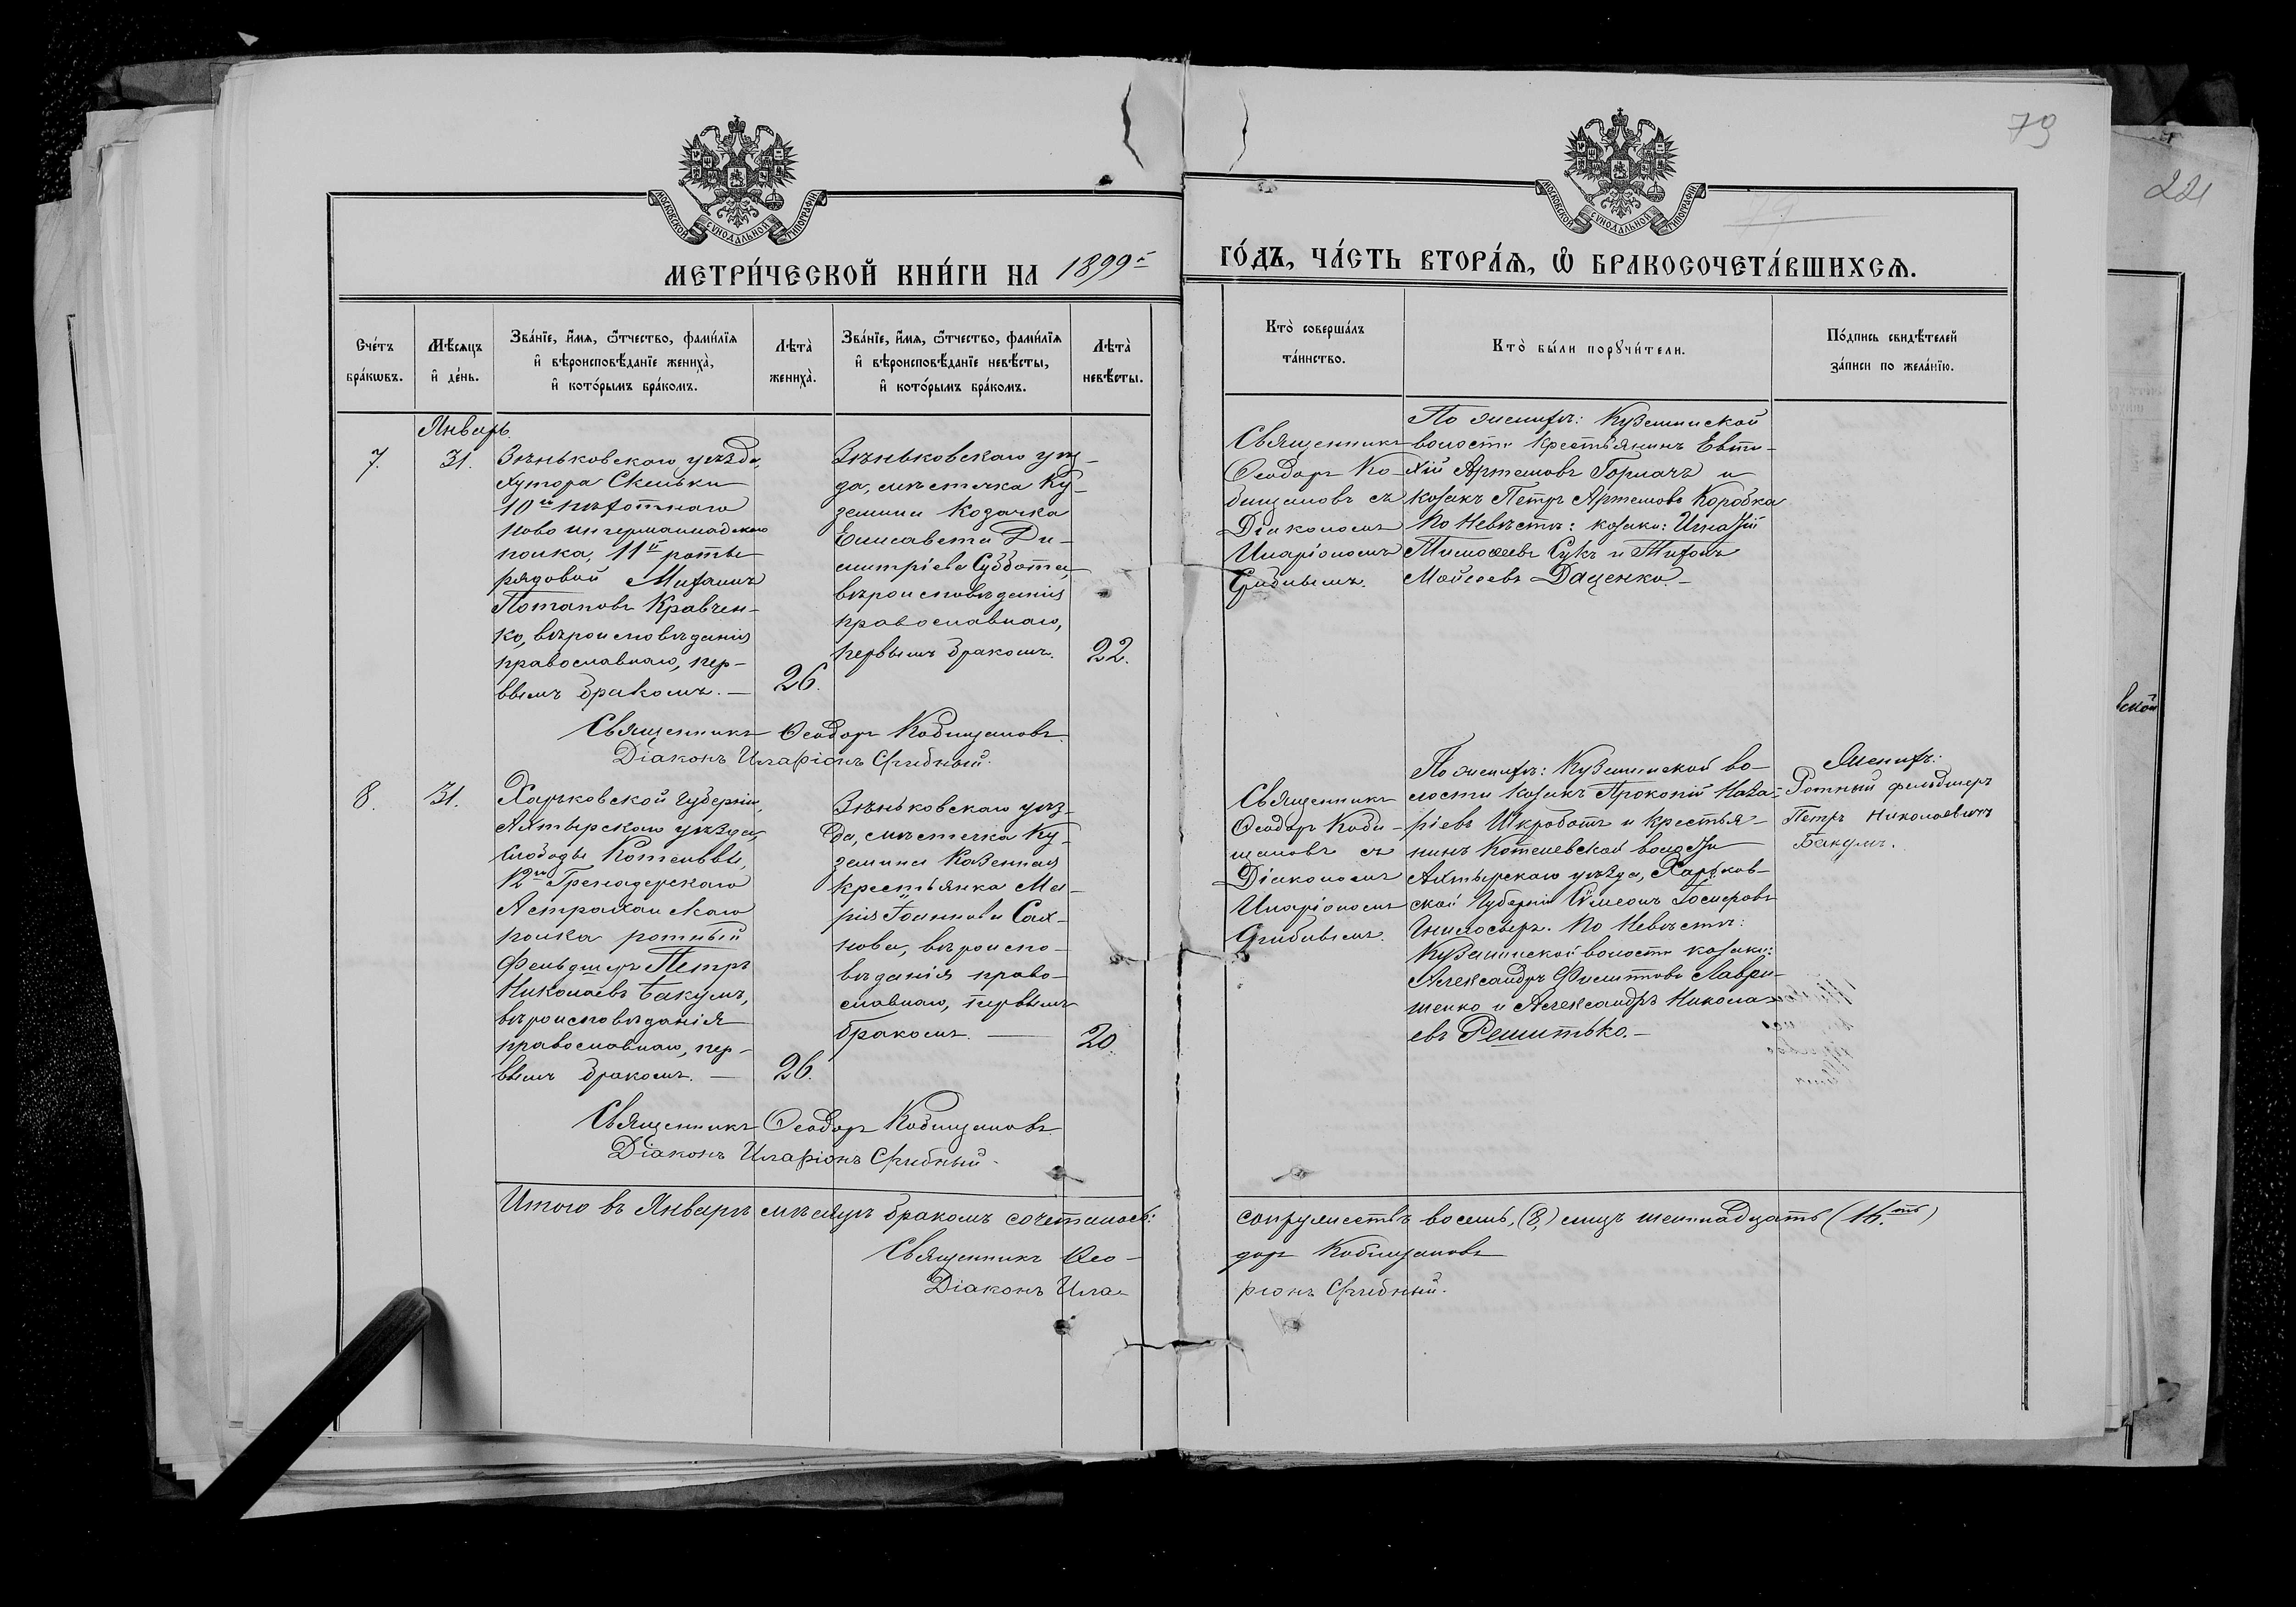 79
221
МОСКОВСКОЙ СУНОДАЛЬНОЙ ТИПОГРАФІИ
МОСКОВСКОЙ СУНОДАЛЬНОЙ ТИПОГРАФІИ
МЕТРИ́ЧЕСКОЙ КНИ́ГИ НА 1899г
ГО́ДЪ, ЧА́СТЬ ВТОРА́Ѧ, Ѡ҆ БРАКОСОЧЕТА́ВШИХСѦ.
Счéтъ
брáкѡвъ.
Мѣ́сяцъ
и҆ дéнь.
Звáнїе, и҆́мѧ, ѻ҆́тчество, фами́лїѧ
и҆ вѣроисповѣ́данїе женихà,
и҆ котóрымъ брáкомъ.
Лѣтà
женихà.
Звáнїе, и҆́мѧ, ѻ҆́тчество, фами́лїѧ
и҆ вѣроисповѣ́данїе невѣ́сты,
и҆ котóрымъ брáкомъ.
Лѣтà
невѣ́сты.
Ктò совершáлъ
тáинство.
Ктò бы́ли порꙋчи́тели.
Пóдпись свидѣ́телей
зáписи по желáнїю.
Январь.
7.
31.
Зѣньковскаго уѣзда,
хутора Скельки
10го пѣхотнаго
Ново ингерманладскаго
полка, 11й роты
рядовой Михаилъ
Потаповъ Кравчен-
ко, вѣроисповѣданія
православнаго, пер-
вымъ бракомъ. —
26.
Зѣньковскаго уѣз-
да, мѣстечка Ку-
земина Козачка
Елисавета Ди-
митріева Суббота,
вѣроисповѣданія
православнаго,
первымъ бракомъ.
22.
Священникъ
Ѳеодоръ Ко-
бищановъ съ
Діакономъ
Иларіономъ
Срибнымъ.
По женихѣ: Куземинской
волости крестьянинъ Евти-
хій Артемовъ Горкачъ и
козакъ Петръ Артемовъ Коробка
По Невѣстѣ: козаки: Игнатій
Тимоѳеевъ Сукъ и Тихонъ
Мойсеевъ Даценко. —
Священникъ Ѳеодоръ Кобищановъ.
Діаконъ Иларіонъ Срибный.
8.
31.
Харьковской губерніи,
Ахтырскаго уѣзда,
слободы Котельвы,
12го Гренадерскаго
Астраханскаго
полка ротный
Фельдшеръ Петръ
Николаевъ Бакумъ,
вѣроисповѣданія
православнаго, пер-
вымъ бракомъ. —
26.
Зѣньковскаго уѣз-
да, мѣстечка Ку-
земина Казенная
крестьянка Ма-
рія Іоаннова Сах-
нова, вѣроиспо-
вѣданія право-
славнаго, первымъ
бракомъ. —
20.
Священникъ
Ѳеодоръ Коби-
щановъ съ
Діакономъ
Иларіономъ
Срибнымъ.
По женихѣ: Куземинской во-
лости козакъ Прокопій Наза-
ріевъ Шкроботъ и крестья-
нинъ Котелевской волости
Ахтырскаго уѣзда, Харьков-
ской губерніи Сѵмеонъ
Гнилосыръ. По Невѣстѣ:
Куземинской волости козаки:
Александръ Филиповъ Лаври-
шенко и Александръ Никола-
евъ Решитько. —
Женихъ:
Ротный фельдшеръ
Петръ Николаевичъ
Бакумъ.
Священникъ Ѳеодоръ Кобищановъ.
Діаконъ Иларіонъ Срибный.
Итого въ Январѣ мѣсяцѣ бракомъ сочеталось: супружествъ восемь, (8,) лицъ шестнадцать (16.ть)
Священникъ Ѳео-доръ Кобищановъ
Діаконъ Ила-ріонъ Срибный.
ской